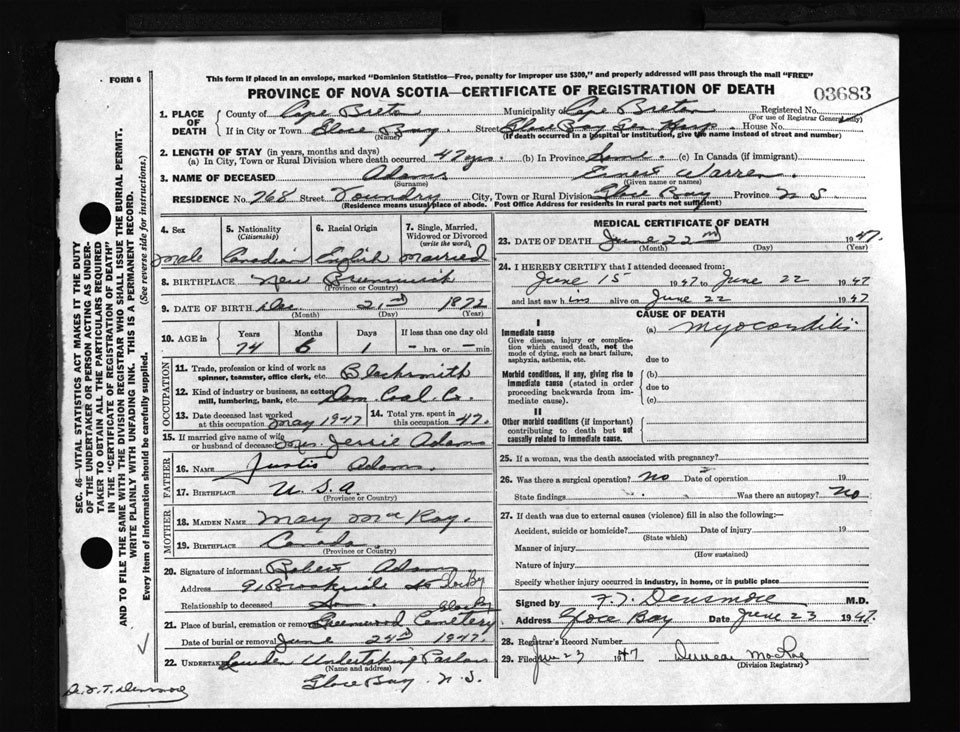 FORM 6
This form if placed in an envelope, marked "Dominion Statistics—Free, penalty for improper use $300," and properly addressed will pass through the mail "FREE"
PROVINCE OF NOVA SCOTIA—CERTIFICATE OF REGISTRATION OF DEATH
03683
1. PLACE OF DEATH
County of Cape Breton Municipality of Cape Breton Registered No.
(For use of Registrar General only)
If in City or Town Glace Bay. Street Glace Bay Gen Hosp. House No.
(Name) (If death occurred in a hospital or institution, give the name instead of street and number)
2. LENGTH OF STAY (in years, months and days)
(a) In City, Town or Rural Division where death occurred 47 yrs. (b) In Province Same. (c) In Canada (if immigrant)
3. NAME OF DECEASED Adams Ernest Warren.
(Surname) (Given name or names)
RESIDENCE No. 768 Street Foundry City, Town or Rural Division Glace Bay Province N S.
(Residence means usual place of abode. Post Office Address for residents in rural parts not sufficient)
4. Sex
Male
5. Nationality (Citizenship)
Canadian
6. Racial Origin
English
7. Single, Married, Widowed or Divorced (write the word)
Married
8. BIRTHPLACE New Brunswick
(Province or Country)
9. DATE OF BIRTH Dec. 21st 1872
(Month) (Day) (Year)
10. AGE in
Years Months Days If less than one day old
74 6 1 — hrs. or — min.
OCCUPATION
11. Trade, profession or kind of work as spinner, teamster, office clerk, etc. Blacksmith
12. Kind of industry or business, as cotton mill, lumbering, bank, etc. Dom. Coal. Co.
13. Date deceased last worked at this occupation May 1947
14. Total yrs. spent in this occupation 47.
15. If married give name of wife or husband of deceased Mrs. Jessie Adams
FATHER
16. NAME Justis Adams.
17. BIRTHPLACE U.S.A.
(Province or Country)
MOTHER
18. MAIDEN NAME Mary McKay.
19. BIRTHPLACE Canada.
(Province or Country)
20. Signature of informant Robert Adams
Address 91 Brookside St
Relationship to deceased Son.
Glace Bay
21. Place of burial, cremation or removal Greenwood Cemetery
Date of burial or removal June 24th 1947.
22. UNDERTAKER Undertaking Parlors
(Name and address)
Glace Bay. N.S.
MEDICAL CERTIFICATE OF DEATH
23. DATE OF DEATH June 22nd 1947.
(Month) (Day) (Year)
24. I HEREBY CERTIFY that I attended deceased from:
June 15 1947 to June 22 1947
and last saw him alive on June 22 1947
CAUSE OF DEATH
I
Immediate cause (a) Myocarditis
Give disease, injury or complication which caused death, not the mode of dying, such as heart failure, asphyxia, asthenia, etc.
due to
Morbid conditions, if any, giving rise to immediate cause (stated in order proceeding backwards from immediate cause).
(b)
due to
(c)
II
Other morbid conditions (if important) contributing to death but not causally related to immediate cause.
25. If a woman, was the death associated with pregnancy?
26. Was there a surgical operation? No Date of operation 19
State findings Was there an autopsy? No
27. If death was due to external causes (violence) fill in also the following:—
Accident, suicide or homicide? Date of injury 19
(State which)
Manner of injury
(How sustained)
Nature of injury
Specify whether injury occurred in industry, in home, or in public place
Signed by F.T. Densmore M.D.
Address Glace Bay Date June 23 1947.
28. Registrar's Record Number
29. Filed Jun 23 1947 Duncan
(Division Registrar)
SEC. 46—VITAL STATISTICS ACT MAKES IT THE DUTY
OF THE UNDERTAKER OR PERSON ACTING AS UNDERTAKER
TO OBTAIN ALL THE PARTICULARS REQUIRED
IN THE "CERTIFICATE OF REGISTRATION OF DEATH"
AND TO FILE THE SAME WITH THE DIVISION REGISTRAR WHO SHALL ISSUE THE BURIAL PERMIT.
WRITE PLAINLY WITH UNFADING INK. THIS IS A PERMANENT RECORD.
Every item of information should be carefully supplied. (See reverse side for instructions.)
Densmore